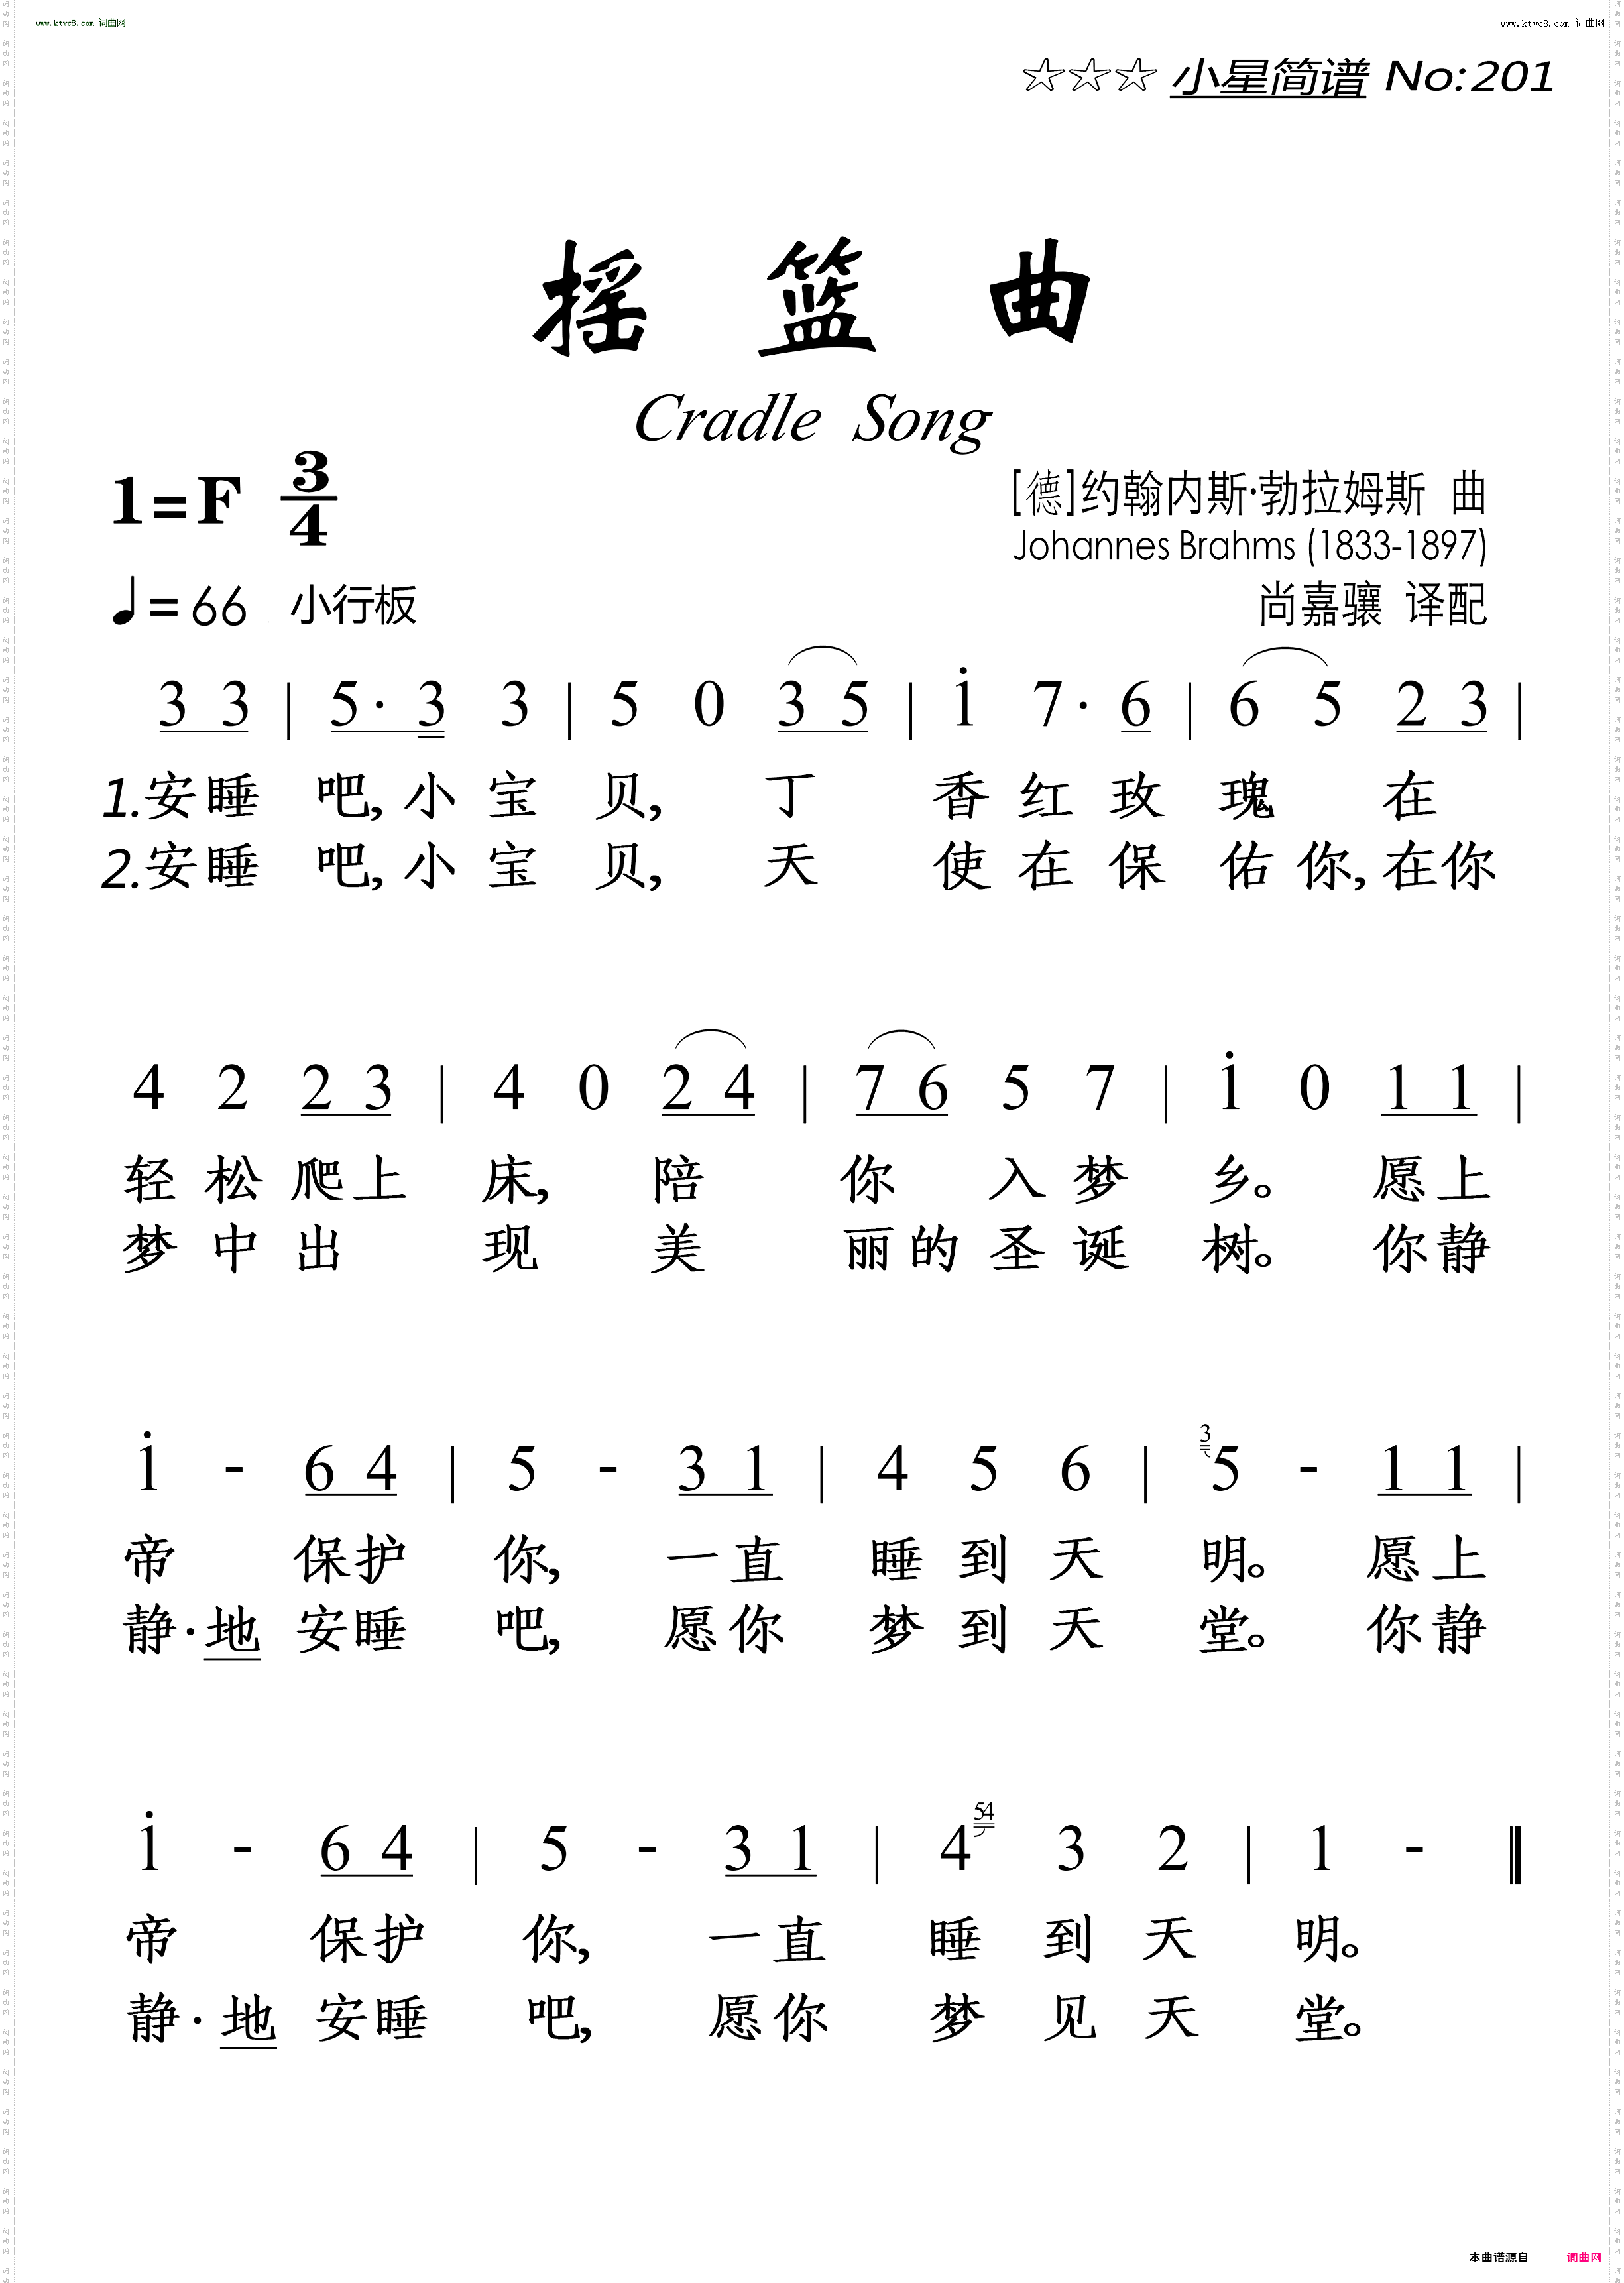 www.ktvc8.com 词曲网
www.ktvc8.com 词曲网
☆☆☆ 小星简谱 No:201
摇 篮 曲
Cradle Song
1=F 3/4
[德]约翰内斯·勃拉姆斯 曲
Johannes Brahms (1833-1897)
♩=66 小行板
尚嘉骧 译配
3 3 | 5· 3 3 | 5 0 3 5 | i 7· 6 | 6 5 2 3 |
1.安睡 吧,小宝 贝, 丁 香红玫 瑰 在
2.安睡 吧,小宝 贝, 天 使在保 佑你,在你
4 2 2 3 | 4 0 2 4 | 7 6 5 7 | i 0 1 1 |
轻松爬上 床, 陪 你 入梦 乡。 愿上
梦中出 现 美 丽的圣诞 树。 你静
i - 6 4 | 5 - 3 1 | 4 5 6 | 3 5 - 1 1 |
帝 保护 你, 一直 睡到天 明。 愿上
静·地 安睡 吧, 愿你 梦到天 堂。 你静
i - 6 4 | 5 - 3 1 | 4 54 3 2 | 1 - ‖
帝 保护 你, 一直 睡到天 明。
静·地 安睡 吧, 愿你 梦见天 堂。
本曲谱源自 词曲网